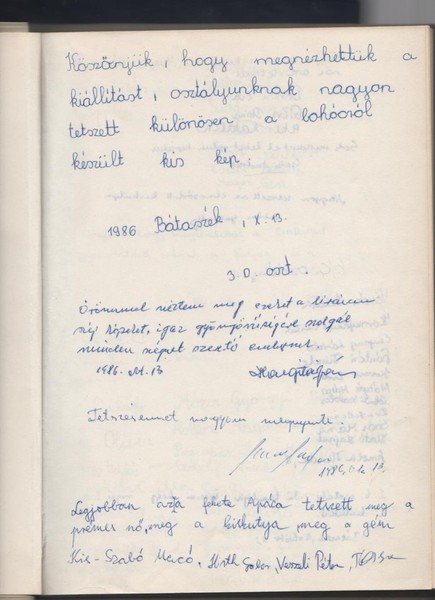 Köszönjük, hogy megnézhettük a
kiállítást, osztályunknak nagyon
tetszett különösen a bohócról
készült kis kép.
1986 Bátaszék, X. 13.
3. D. oszt.
Örömmel néztem meg ezeket a
képeket, igaz gyönyörűségére szolgál
minden népet szerető embernek
1986. 13
Tetszésemet nagyon megnyerte.
1986. 13.
Legjobban az a fekete tetszett meg a
prémes nő, meg a kiskutya, meg a gém
Kis-Szabó Péter,